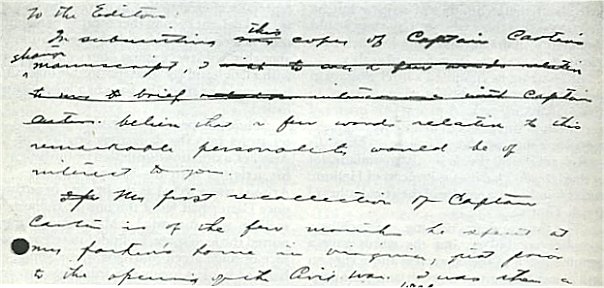 To the Editor:
In submitting my this copy of Captain Carter's
strange manuscript, I wish to say a few words relative
to my & brief intercourse with Captain
Carter. believe that a few words relative to this
remarkable personality would be of
interest to you.
My first recollection of Captain
Carter is of the few months he spent at
my father's home in Virginia, just prior
to the opening of the Civil War. I was then a